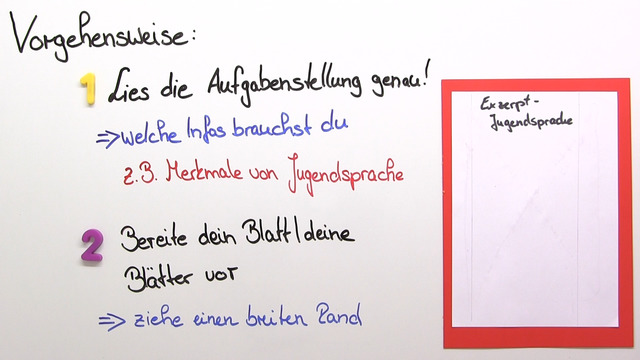 Vorgehensweise:
1 Lies die Aufgabenstellung genau!
⇒ welche Infos brauchst du
z.B. Merkmale von Jugendsprache
2 Bereite dein Blatt/deine
Blätter vor
⇒ ziehe einen breiten Rand
Exzerpt-
Jugendsprache